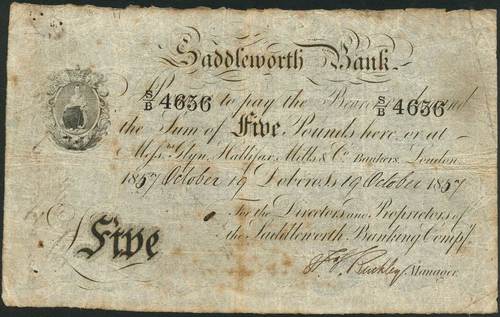 Saddleworth Bank
S/B 4636 to pay the Bearer S/B 4636
the Sum of Five Pounds here or at
Messrs. Glyn, Hallifax, Mills & Co. Bankers, London.
1857 October 19 Dobcross 19 October 1857
For the Directors and Proprietors of
the Saddleworth Banking Compy.
Five
Buckley Manager.